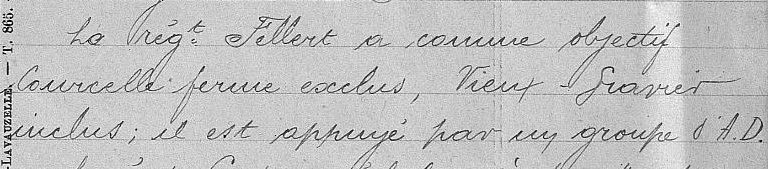 Le régt Fellert a comme objectif
Courcelle ferme exclus, Vieux-Gravier
inclus; il est appuyé par un groupe d'A.D.
-LAVAUZELLE. — T. 865.